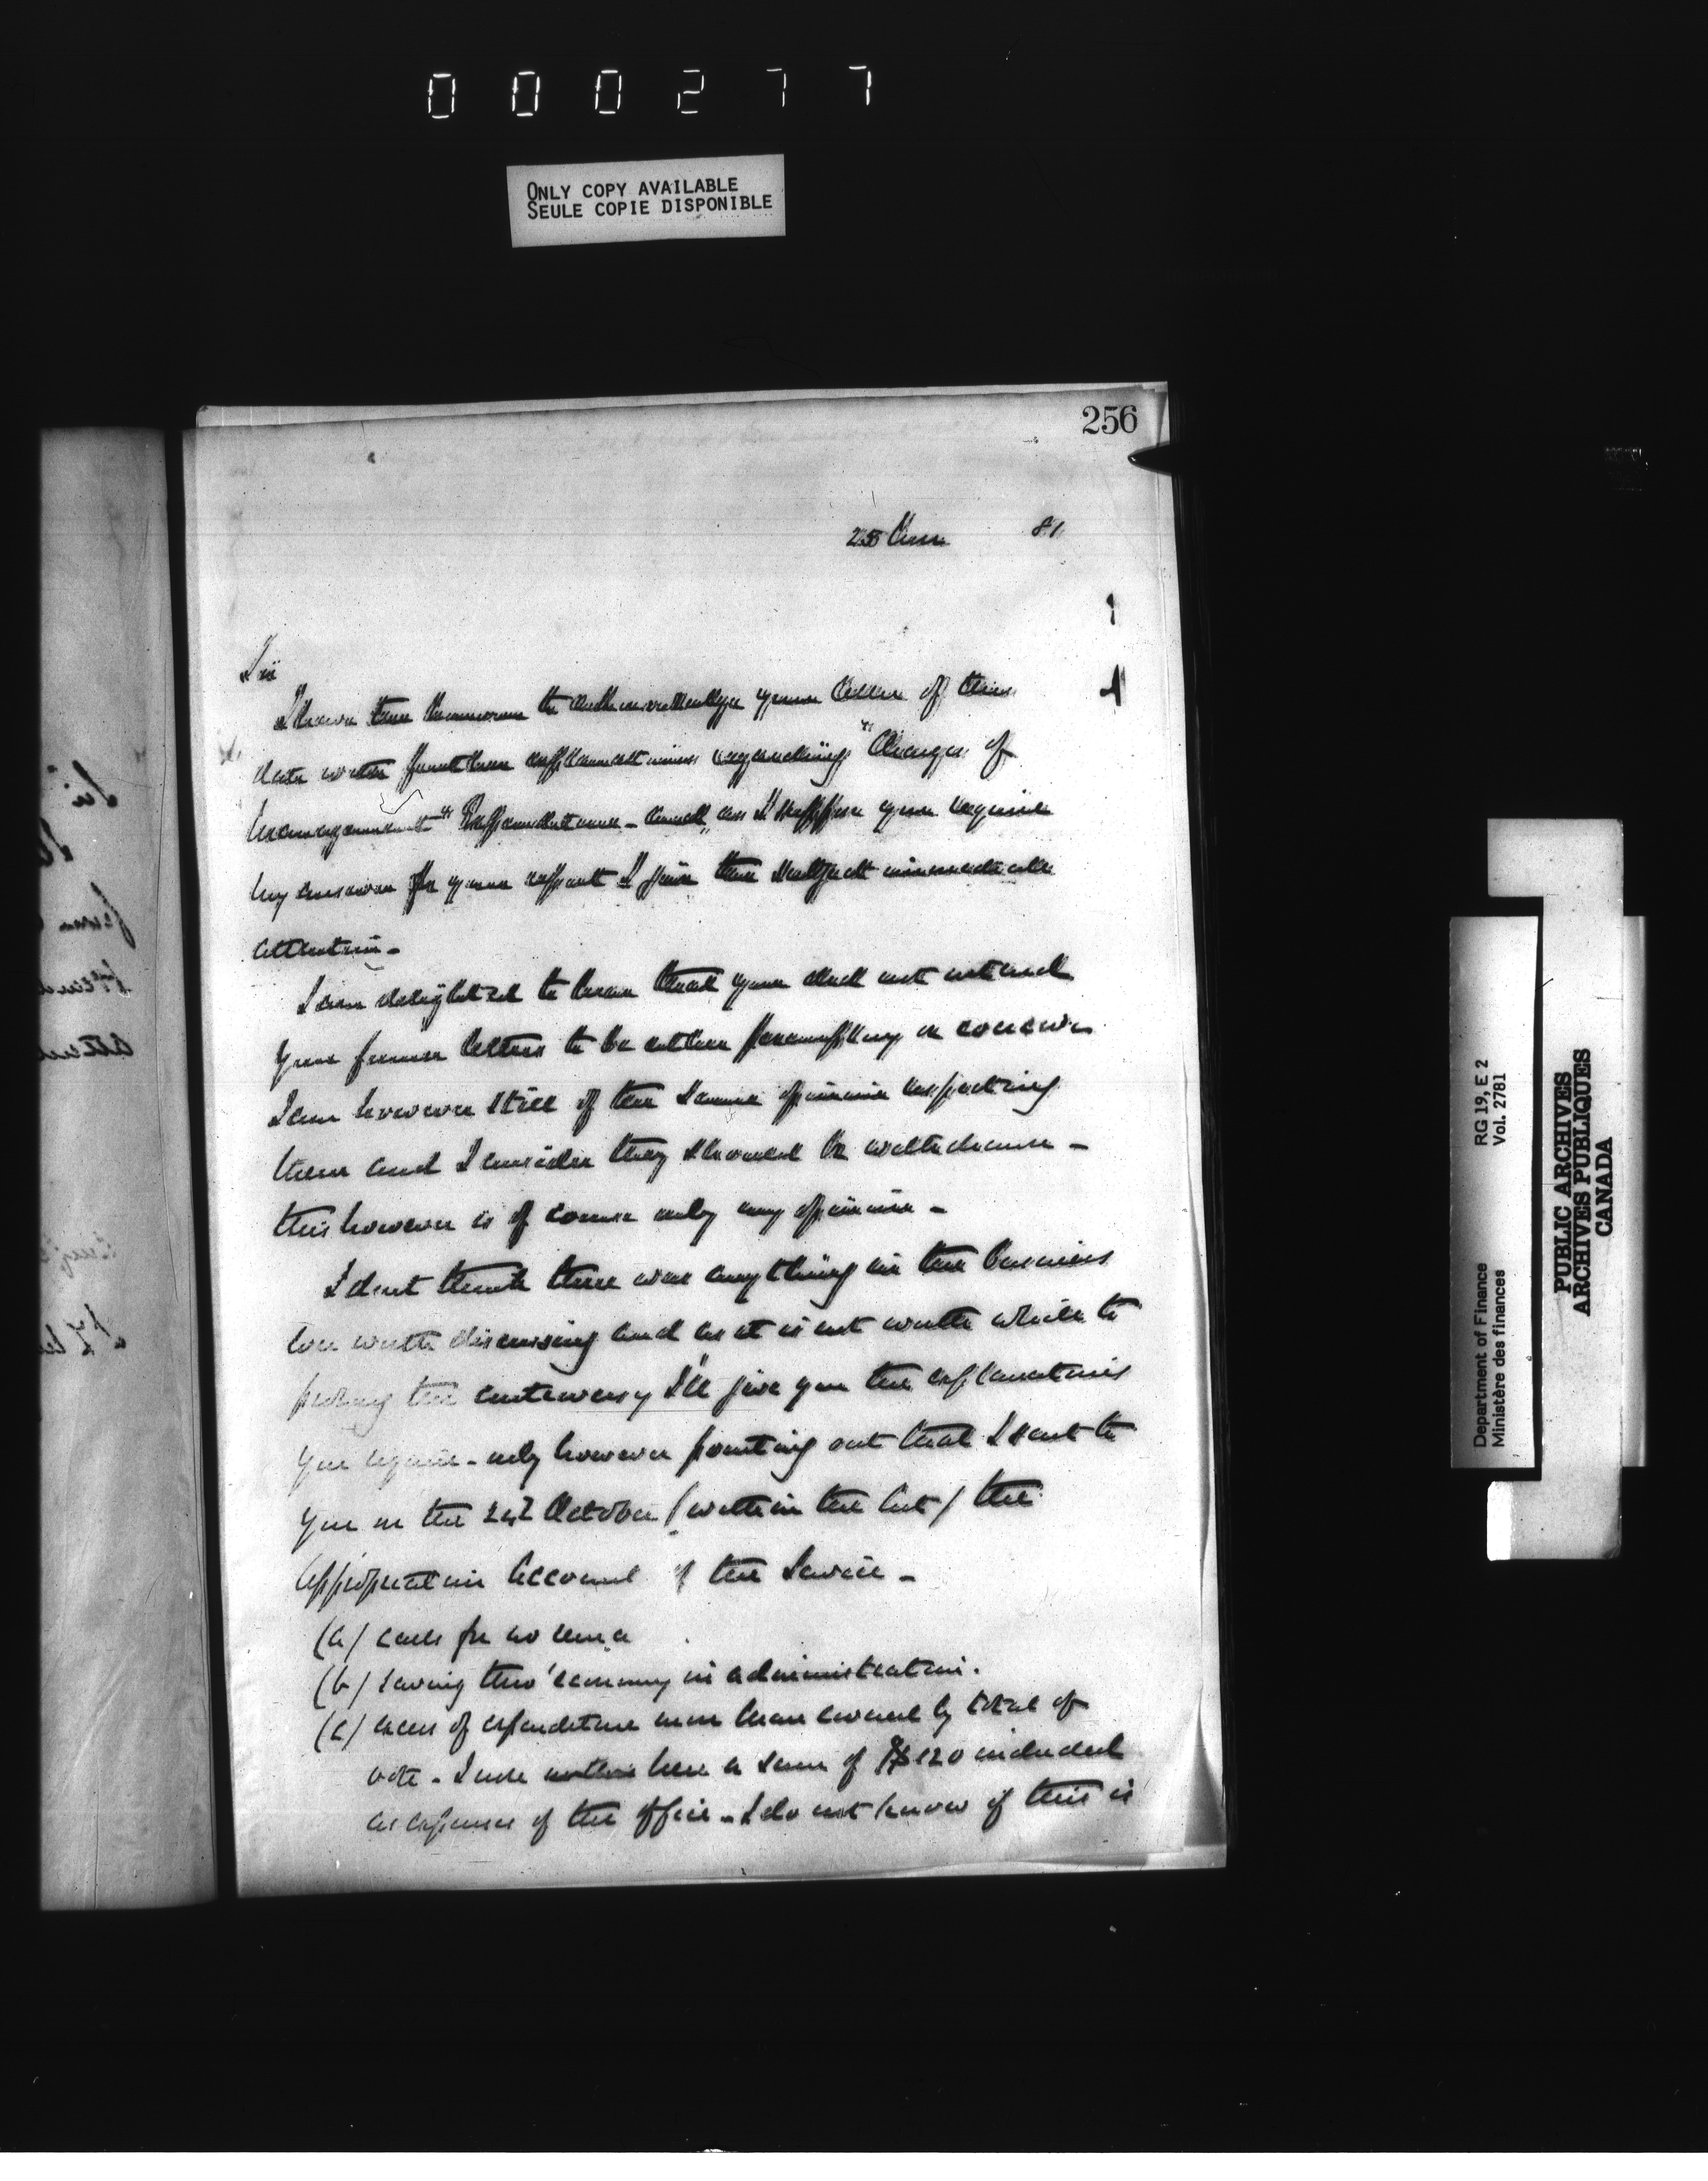 000277
ONLY COPY AVAILABLE
SEULE COPIE DISPONIBLE
256
25 81
Sir
I have the honour to acknowledge your letter of this
date with further explanations regarding "Charges of
Management" Expenditure - and, as I suppose you require
my answer for your report I give the subject immediate
attention -
I am delighted to hear that you did not intend
your former letters to be either peremptory or
I am however still of the same opinion respecting
them and I consider they should be withdrawn -
this however is of course only my opinion -
I dont think there was anything in the business
worth discussing and as it is not worth while to
prolong the controversy I'll give you the explanations
you require - only however pointing out that I sent to
you on the 24th October (within the Act) the
Appropriation Account of the Service -
(a) calls for no rema
(b) saving thro' economy in administration.
(c) excess of expenditure more than covered by total of
vote - I note here a sum of $120 included
as expenses of the office - I do not know if this is
Department of Finance RG 19, E 2
Ministère des finances Vol. 2781
PUBLIC ARCHIVES
ARCHIVES PUBLIQUES
CANADA